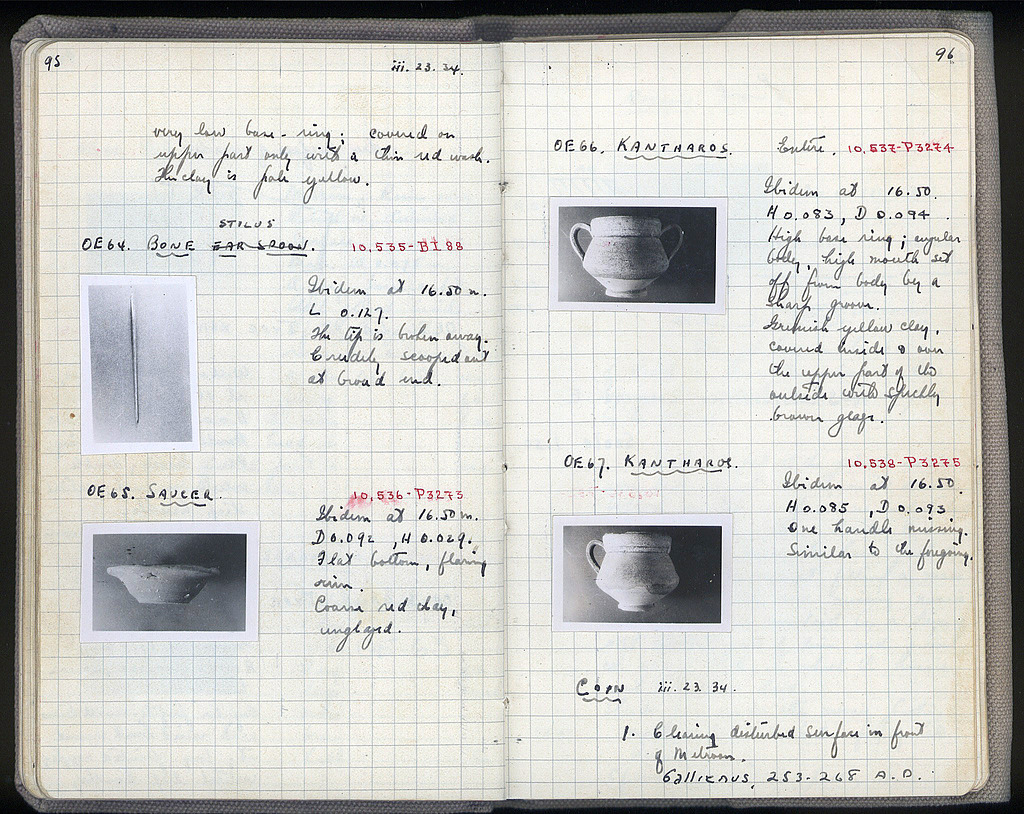 95
iii. 23. 34.
very low base-ring; covered on
upper part only with a thin red wash.
The clay is pale yellow.
STILUS
OE64. BONE EAR SPOON. 10,535-BI 88
Ibidem at 16.50 m.
L 0.127.
The tip is broken away.
Crudely scooped out
at broad end.
OE65. SAUCER. 10,536-P3273
Ibidem at 16.50 m.
D 0.092, H 0.029.
Flat bottom, flaring
rim.
Coarse red clay,
unglazed.
96
OE66. KANTHAROS. Entire. 10,537-P3274
Ibidem at 16.50.
H 0.083, D 0.094.
High base ring; angular
body, high mouth set
off from body by a
sharp groove.
Greenish yellow clay,
covered inside & over
the upper part of the
outside with
brown glaze.
OE67. KANTHAROS. 10,538-P3275
Ibidem at 16.50.
H 0.085, D 0.093
One handle missing.
Similar to the foregoing.
COIN iii. 23. 34.
1. Clearing disturbed surface in front
of Metroon.
Gallienus, 253-268 A.D.